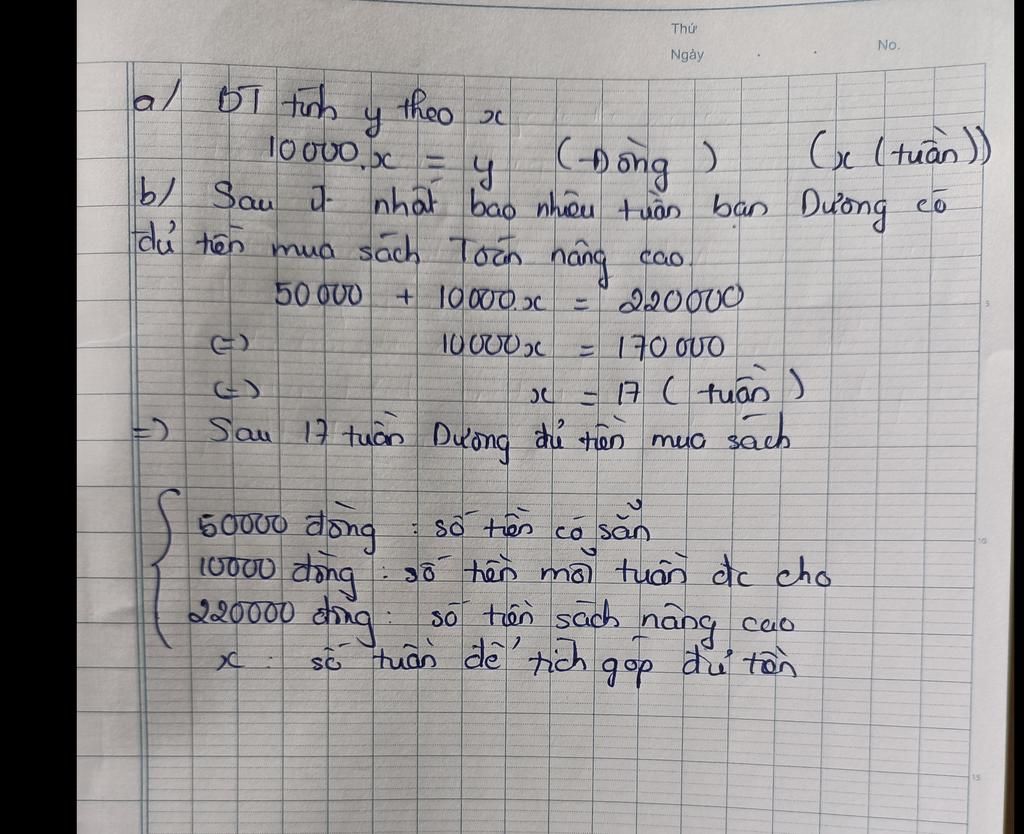 Thứ
Ngày . . No.
a/ ĐT tính y theo x
10000.x = y (Đồng) (x (tuần))
b/ Sau ít nhất bao nhiêu tuần bạn Dương có
đủ tiền mua sách Toán nâng cao.
50000 + 10000.x = 220000
(=) 10000x = 170000
(=) x = 17 (tuần)
=) Sau 17 tuần Dương đủ tiền mua sách
5
50000 đồng : số tiền có sẵn
10
10000 đồng : số tiền mỗi tuần đc cho
220000 đồng : số tiền sách nâng cao
x : số tuần để tích góp đủ tiền
15